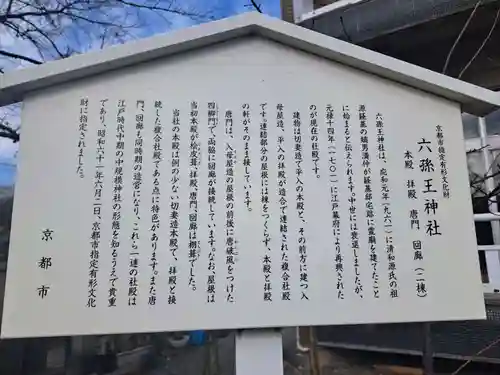 京都市指定有形文化財
六孫王神社
本殿 拝殿 唐門 回廊(二棟)
六孫王神社は、応和元年(九六一)に清和源氏の祖
源経基の嫡男満仲が経基邸宅跡に霊廟を建てたこと
に始まると伝えられます。中世には衰退しましたが、
元禄十四年(一七〇一)に江戸幕府により再興された
のが現在の社殿です。
建物は切妻造で平入の本殿と、その前方に建つ入
母屋造、平入の拝殿が造合で連結された複合社殿
です。連結部分の屋根には棟をつくらず、本殿と拝殿
の軒がそのまま接しています。
唐門は、入母屋造の屋根の前後に唐破風をつけた
四脚門で、両脇に回廊が接続しています。なお、屋根は
当初本殿が桧皮葺、拝殿、唐門、回廊は栩葺でした。
当社の本殿は例の少ない切妻造本殿で、拝殿と接
続した複合社殿である点に特色があります。また唐
門、回廊も同時期の造営になり、これら一連の社殿は
江戸時代中期の中規模神社の形態を知るうえで貴重
であり、昭和六十一年六月二日、京都市指定有形文化
財に指定されました。
京都市